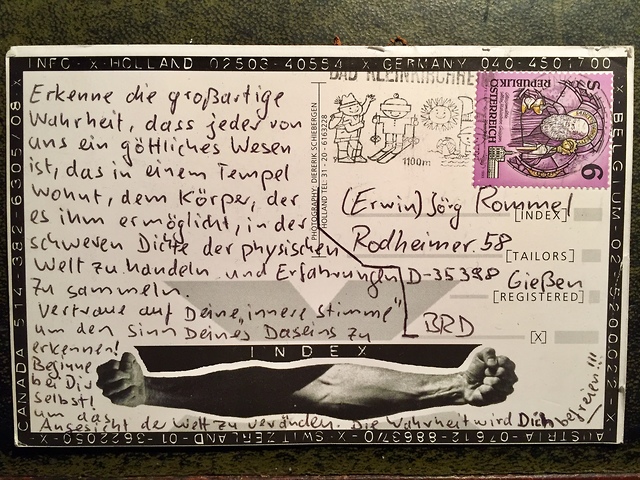 INFO - X - HOLLAND 02503-40554 - X - GERMANY 040-4501700
X - BELGIUM 02-5200022 - X
CANADA 514-382-6305/08 X
AUSTRIA-07612-88637/0 - X - SWITZERLAND-01-3622050-X
Erkenne die großartige
Wahrheit, dass jeder von
uns ein göttliches Wesen
ist, das in einem Tempel
wohnt, dem Körper, der
es ihm ermöglicht, in der
schweren Dichte der physischen
Welt zu handeln und Erfahrungen
zu sammeln.
Vertraue auf Deine „innere Stimme"
um den Sinn Deines Daseins zu
erkennen!
Beginne
bei Dir
selbst!
um das
Angesicht der Welt zu verändern. Die Wahrheit wird Dich befreien!!!
PHOTOGRAPHY: DIERERIK SCHIEBERGEN
HOLLAND TEL: 31 - 20 - 6163228
BAD KLEINKIRCHHE
1100m
REPUBLIK
ÖSTERREICH
6
S
(Erwin) Jörg Rommel
[INDEX]
Rodheimer. 58
[TAILORS]
D-35398 Gießen
[REGISTERED]
BRD
[X]
INDEX